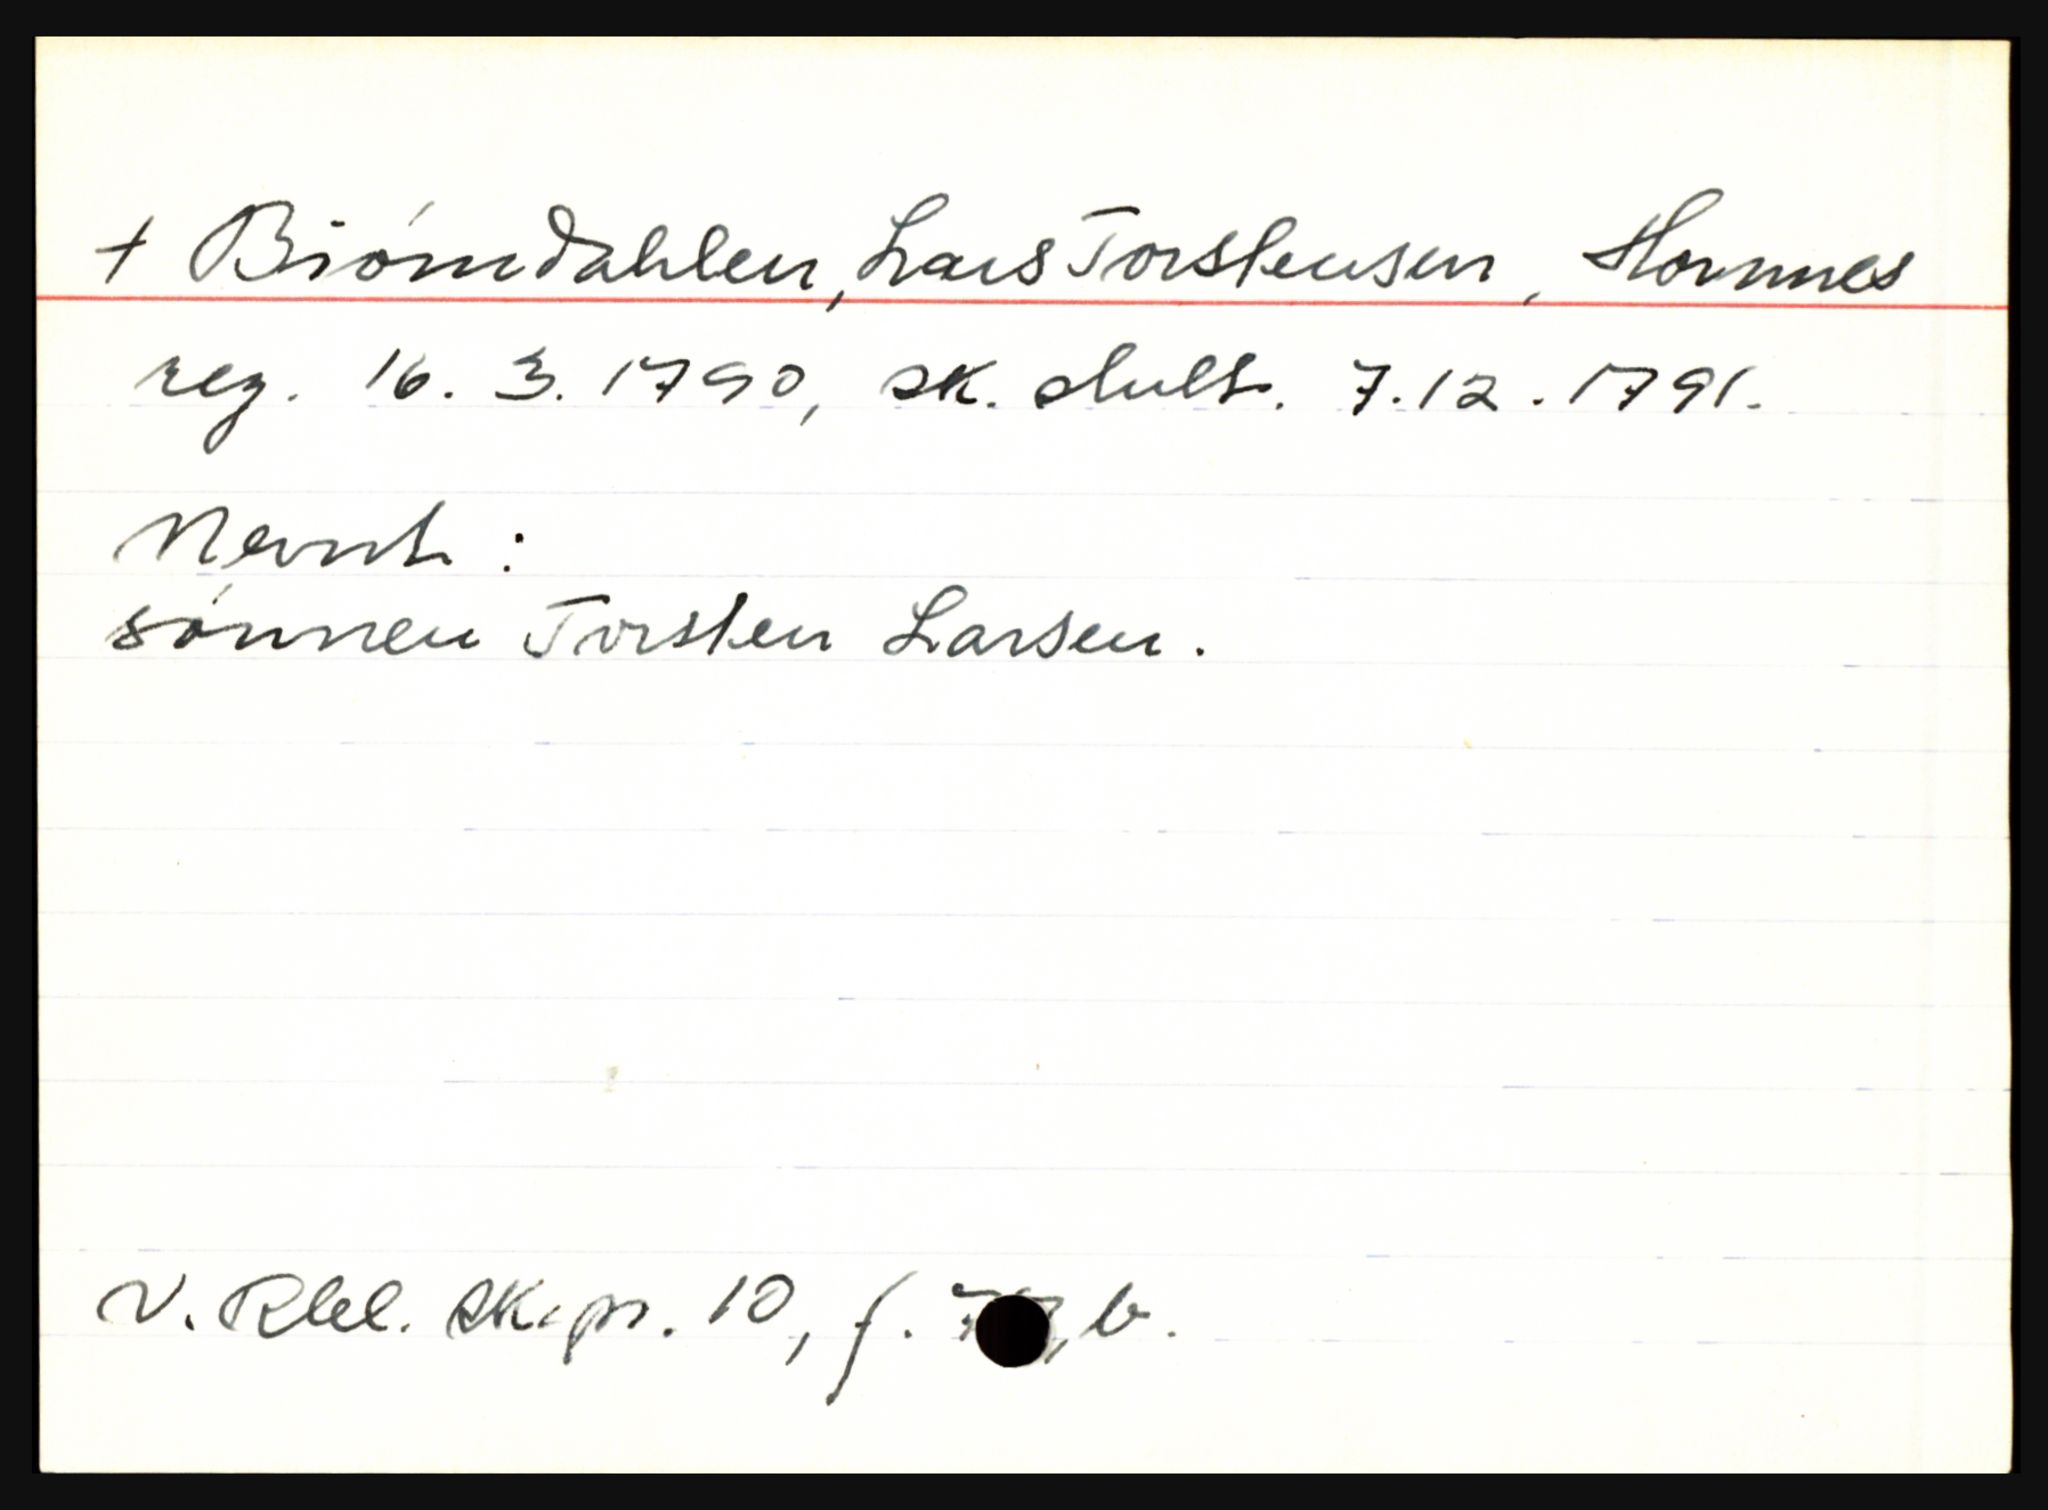 + Biørndahlen, Lars Torstensen, Hornnes
reg. 16.3.1790, sk. slutt. 7.12.1791.
Nevnt:
sønnen Torsten Larsen.
V. Rbl. sk.pr. 10, f. b.